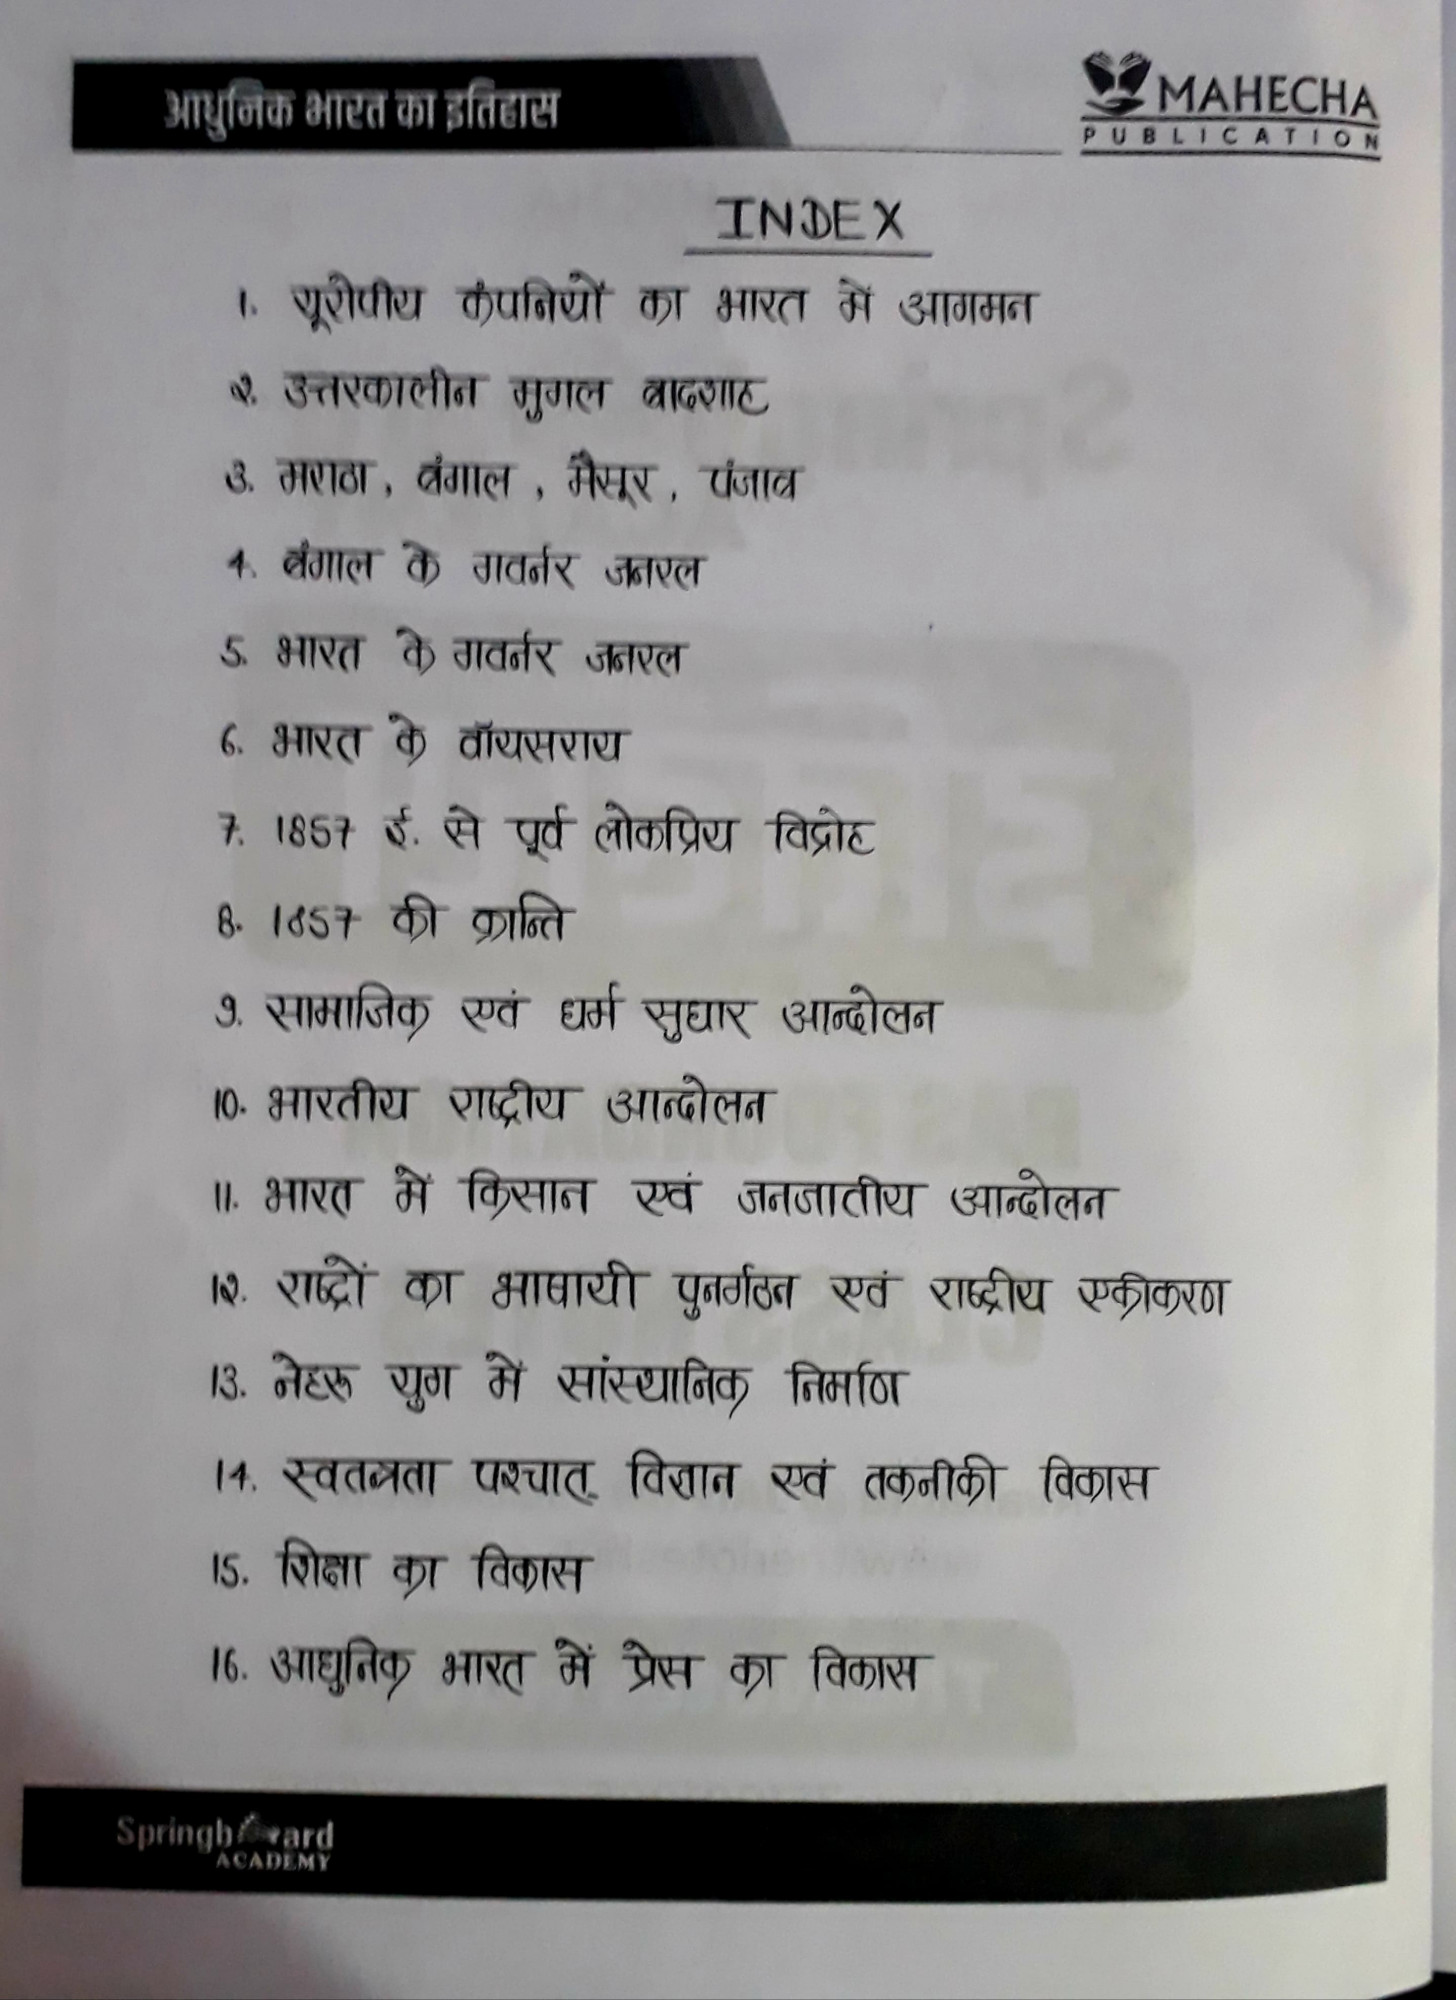 आधुनिक भारत का इतिहास
MAHECHA
PUBLICATION
INDEX
1. यूरोपीय कंपनियों का भारत में आगमन
२. उत्तरकालीन मुगल बादशाह
3. मराठा, बंगाल, मैसूर, पंजाब
4. बंगाल के गवर्नर जनरल
5. भारत के गवर्नर जनरल
6. भारत के वॉयसराय
7. 1857 ई. से पूर्व लोकप्रिय विद्रोह
8. 1857 की क्रान्ति
9. सामाजिक एवं धर्म सुधार आन्दोलन
10. भारतीय राष्ट्रीय आन्दोलन
11. भारत में किसान एवं जनजातीय आन्दोलन
1२. राष्ट्रों का भाषायी पुनर्गठन एवं राष्ट्रीय एकीकरण
13. नेहरू युग में सांस्थानिक निर्माण
14. स्वतन्त्रता पश्चात् विज्ञान एवं तकनीकी विकास
15. शिक्षा का विकास
16. आधुनिक भारत में प्रेस का विकास
Springboard
ACADEMY